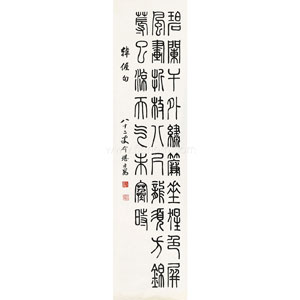 碧闌干外繡簾垂猩色屏
風畫折枝八尺龍須方錦
蓐已涼天气未寒時
韓偓句
八十二叟